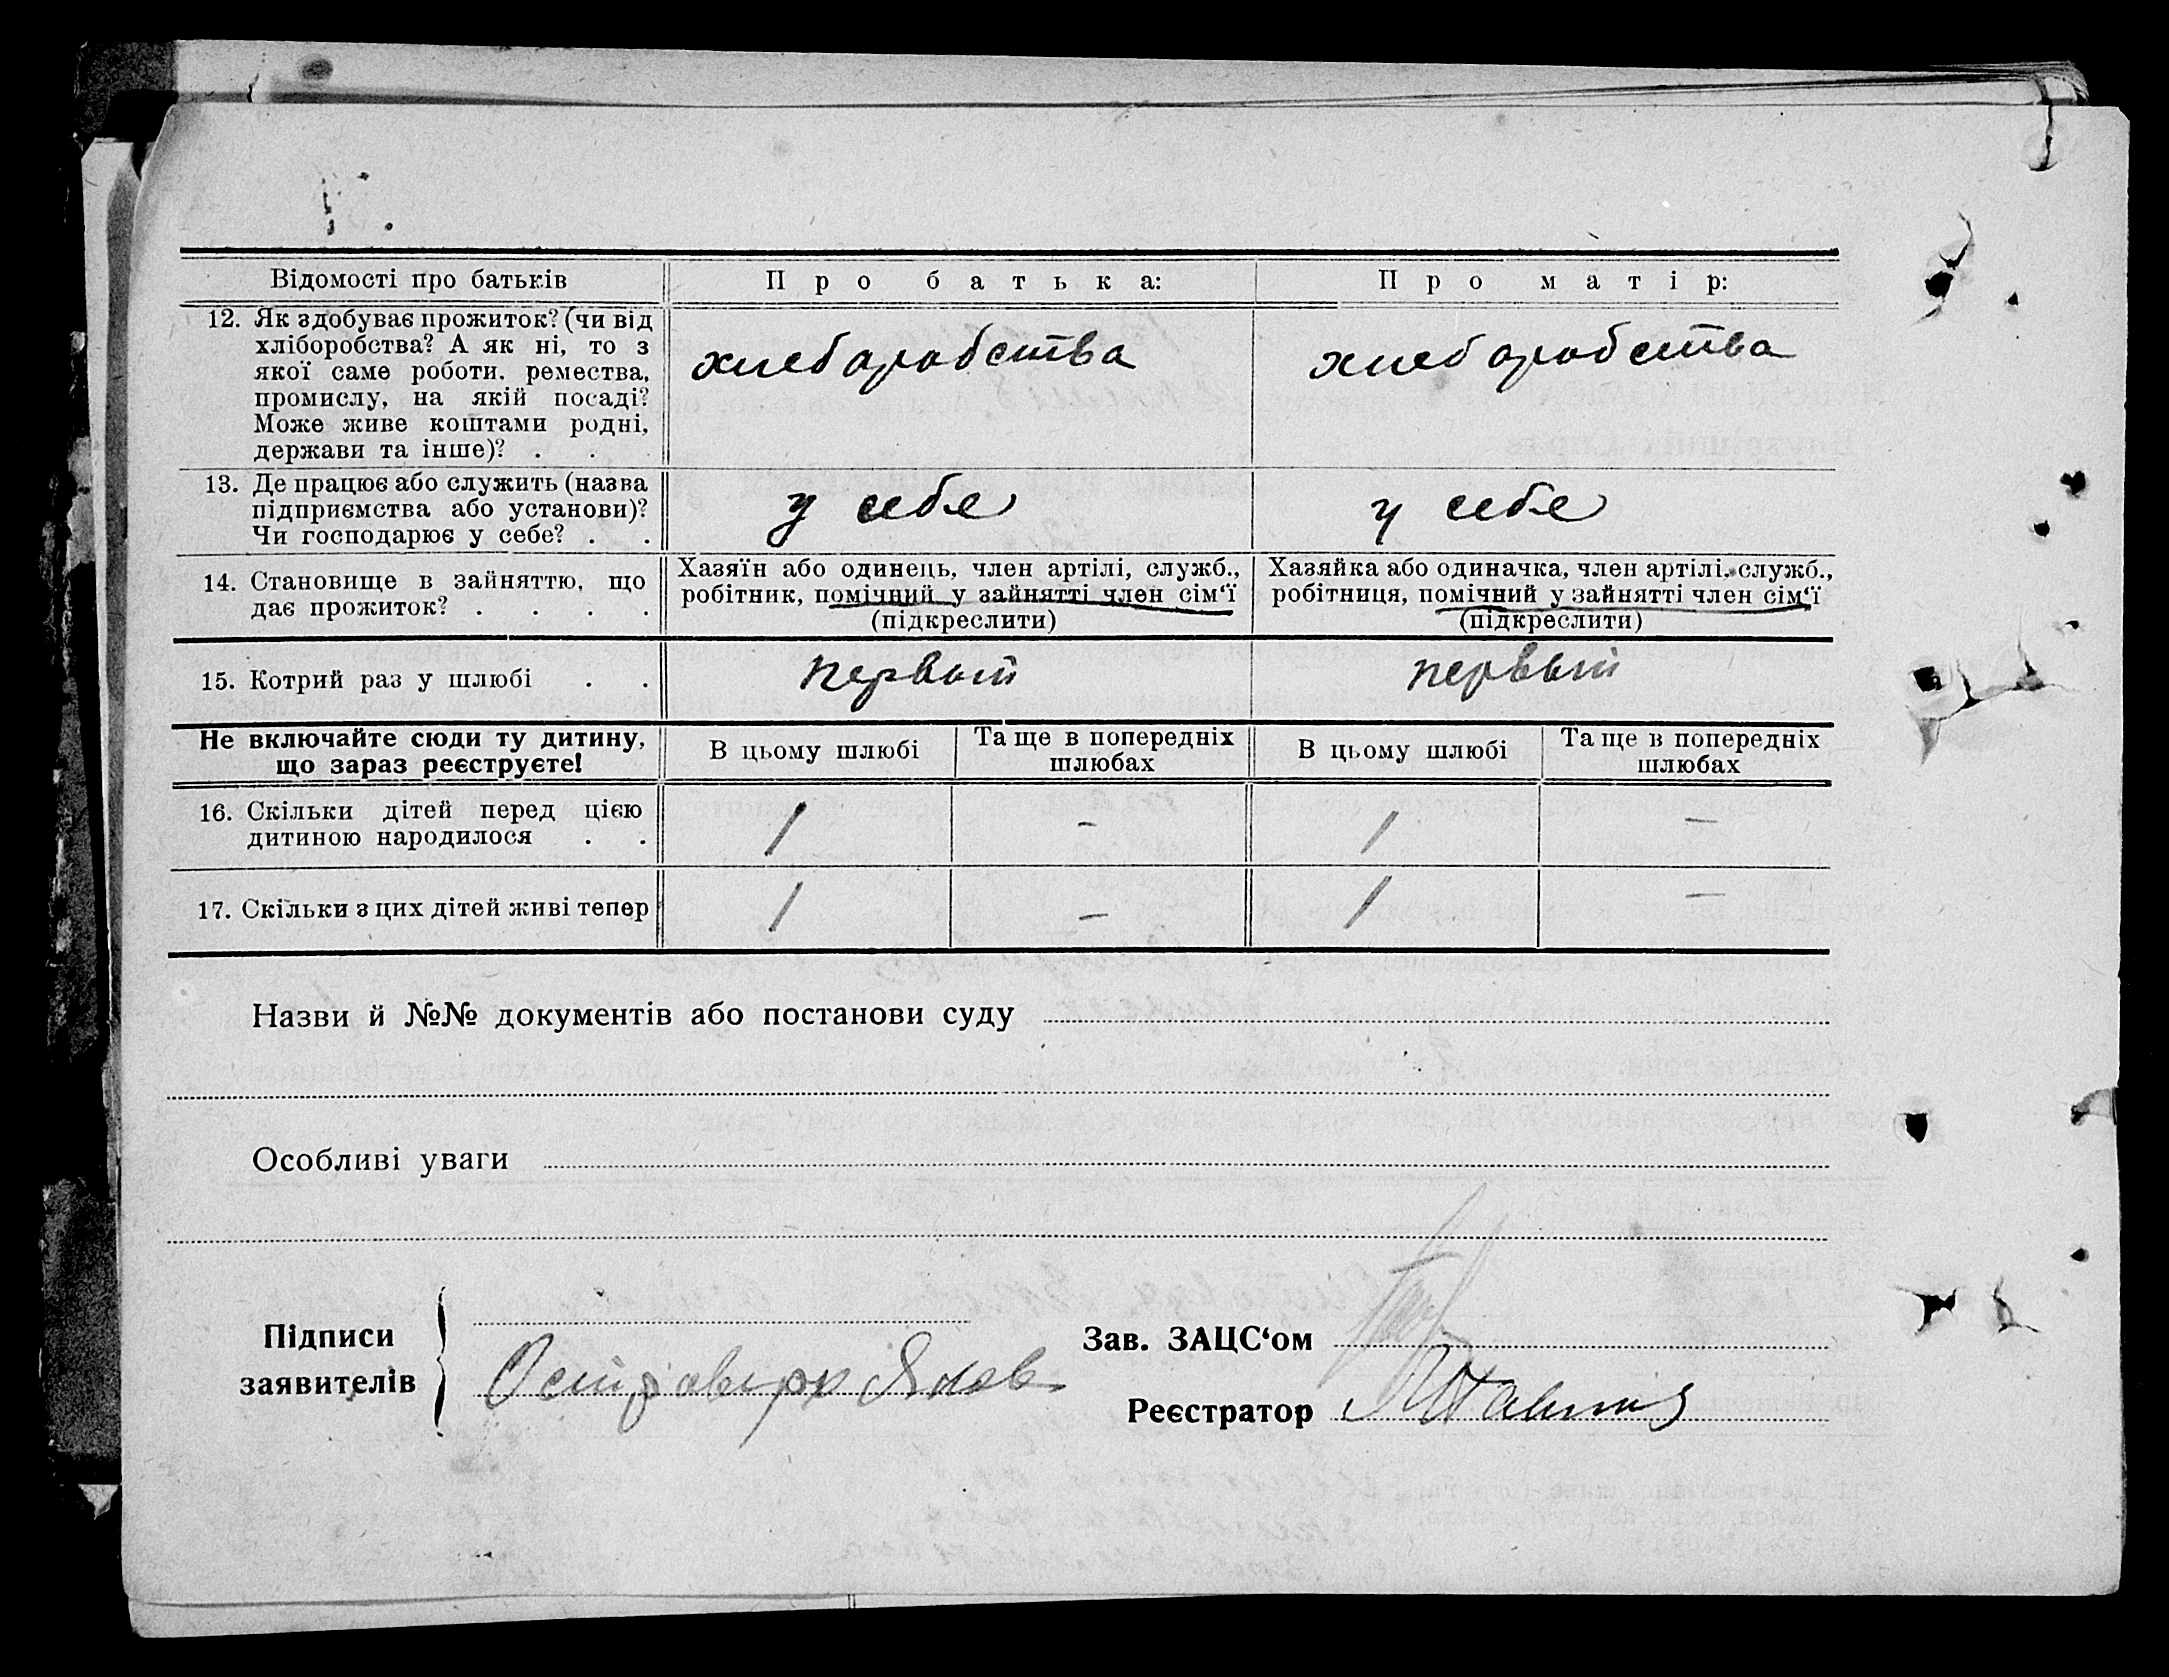 Відомості про батьків Про батька: Про матір:
12. Як здобуває прожиток? (чи від
хліборобства? А як ні, то з
якої саме роботи. ремества,
промислу, на якій посаді?
Може живе коштами родні,
держави та інше)? . .
хлеборобства хлеборобства
13. Де працює або служить (назва
підприємства або установи)?
Чи господарює у себе? . .
у себе у себе
14. Становище в зайняттю, що
дає прожиток? . . . .
Хазяїн або одинець, член артілі, служб.,
робітник, помічний у зайнятті член сім‘ї
(підкреслити)
Хазяйка або одиначка, член артілі, служб.,
робітниця, помічний у зайнятті член сім‘ї
(підкреслити)
15. Котрий раз у шлюбі . . первый первый
Не включайте сюди ту дитину,
що зараз реєструєте!
В цьому шлюбі
Та ще в попередніх
шлюбах
В цьому шлюбі
Та ще в попередніх
шлюбах
16. Скільки дітей перед цією
дитиною народилося . .
1 – 1 –
17. Скільки з цих дітей живі тепер 1 – 1 –
Назви й №№ документів або постанови суду
Особливі уваги
Підписи
заявителів
Остраверх Яков
Зав. ЗАЦС‘ом
Реєстратор